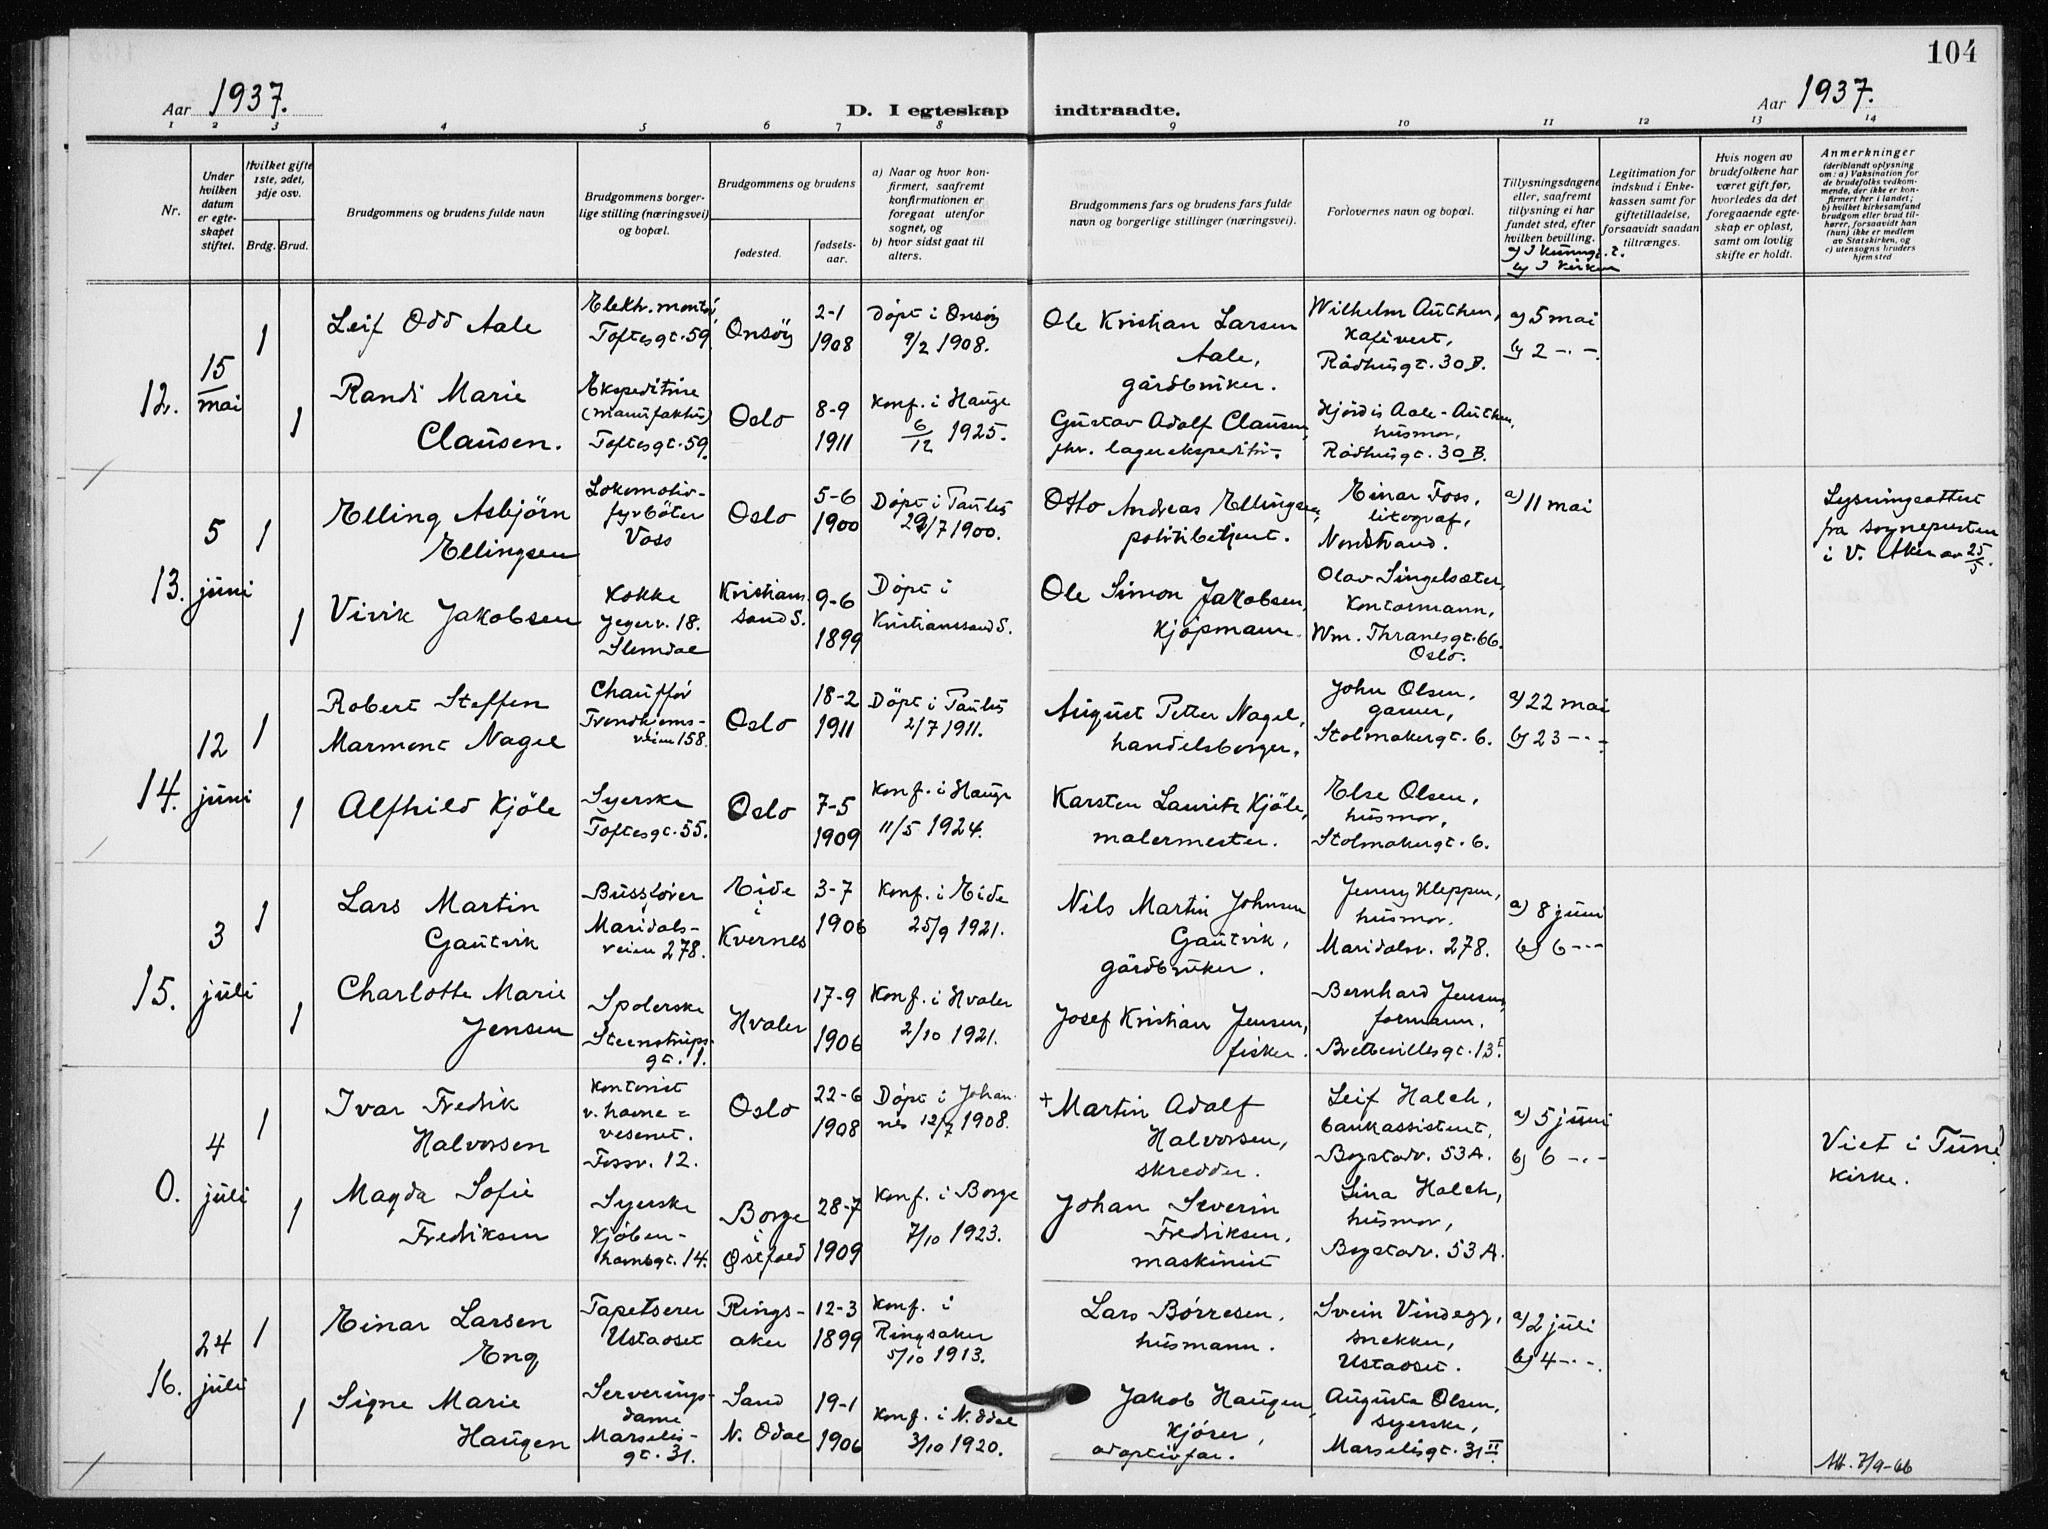 104
Aar 1937.
D. I egteskap indtraadte.
Aar 1937.
1 2 3 4 5 6 7 8 9 10 11 12 13 14
Nr.
Under hvilken datum er egteskapet stiftet.
Hvilket gifte 1ste, 2det, 3dje osv.
Brdg. Brud.
Brudgommens og brudens fulde navn
Brudgommens borgerlige stilling (næringsvei) og bopæl.
Brudgommens og brudens
fødested. fødselsaar.
a) Naar og hvor konfirmert, saafremt konfirmationen er foregaat utenfor sognet, og
b) hvor sidst gaat til alters.
Brudgommens fars og brudens fars fulde navn og borgerlige stillinger (næringsvei).
Forlovernes navn og bopæl.
Tillysningsdagene eller, saafremt tillysning ei har fundet sted, efter hvilken bevilling.
b) I kirken
Legitimation for indskud i Enkekassen samt for giftetilladelse, forsaavidt saadan tiltrænges.
Hvis nogen av brudefolkene har været gift før, hvorledes da det foregaaende egteskap er oplast, samt om lovlig skifte er holdt.
Anmerkninger
(deriblandt oplysning om: a) Vaksination for de brudefolks vedkommende, der ikke er konfirmert her i landet; b) hvilket kirkesamfund brudgom eller brud tilhører, forsaavidt han (hun) ikke er medlem av Statskirken, og c) utensogns bruders hjemsted
12.
15
mai
1
Leif Odd Aale
Elektr. montør
Toftesgt. 59.
Onsøy
2-1
1908
Døpt i Onsøy
9/2 1908.
Ole Kristian Larsen
Aale,
gårdbruker.
Wilhelm Authen,
Kafévert,
Rådhusgt. 30 B.
a) 5 mai
b) 2 -.-
1
Randi Marie
Clausen.
Ekspeditrise
(manufaktur)
Toftesgt. 59.
Oslo
8-9
1911
Konf. i Hauge
6/12 1925.
Gustav Adolf Clausen,
fhv. lagerekspeditør.
Hjørdis Aale-Authen,
husmor,
Rådhusgt. 30 B.
13.
5
juni
1
Elling Asbjörn
Ellingsen
Lokomotiv-
fyrbøter
Voss
Oslo
5-6
1900
Døpt i Paulus
29/7 1900.
Otto Andreas Ellingsen,
politibetjent.
Einar Foss,
litograf,
Nordstrand.
a) 11 mai
Lysningsattest
fra sognepresten
i V. Aker av 25/5.
1
Vivik Jakobsen
Kokke
Jegerv. 18.
Slemdal
Kristian
sand S.
9-6
1899
Døpt i
Kristianssand S.
Ole Simon Jakobsen,
Kjøpmann.
Olav Singelsæter,
Kontormann,
Wm. Thranesgt. 66.
Oslo.
14.
12
juni
1
Robert Steffen
Marmont Nagel
Chaufför
Trondhjems-
veien 158.
Oslo
18-2
1911
Döpt i Paulus
2/7 1911.
August Petter Nagel,
handelsborger.
John Olsen,
garver,
Stolmakergt. 6.
a) 22 mai
b) 23 -.-
1
Alfhild Kjöle
Syerske
Toftesgt. 55.
Oslo
7-5
1909
Konf. i Hauge
11/5 1924.
Karsten Lauritz Kjöle,
malermester.
Else Olsen,
husmor,
Stolmakergt. 6.
15.
3
juli
1
Lars Martin
Gautvik
Bussfører
Maridals-
veien 278.
Eide
i
Kvernes
3-7
1906
Konf. i Eide
25/9 1921.
Nils Martin Johnsen
Gautvik,
gårdbruker.
Jenny Kleppen,
husmor.
Maridalsv. 278.
a) 8 juni
b) 6 -.-
1
Charlotte Marie
Jensen
Spolerske
Steenstrups-
gt. 1.
Hvaler
17-9
1906
Konf. i Hvaler
2/10 1921.
Josef Kristian Jensen,
fisker.
Bernhard Jensen,
formann.
Bretteville​sgt. 13 I.
0.
4
juli
1
Ivar Fredrik
Halvorsen
Kontorist
v. havne=
vesenet.
Fossv. 12.
Oslo
22-6
1908
Døpt i Johan
nes 12/7 1908.
+ Martin Adolf
Halvorsen,
skredder.
Leif Halch,
bankassistent,
Bogstadv. 53 A.
a) 5 juni
b) 6 -.-
Viet i Tune
Kirke.
1
Magda Sofie
Fredriksen
Syerske
Kjøben-
havnsgt. 14.
Borge
i
Østfold
28-7
1909
Konf. i Borge
7/10 1923.
Johan Severin
Fredriksen,
maskinist
Lina Halch,
husmor,
Bogstadv. 53 A.
16.
24
juli
1
Einar Larsen
Eng
Tapetserer
Ustaoset
Rings-
aker
12-3
1899
Konf. i
Ringsaker
5/10 1913.
Lars Børresen,
husmann.
Svein Vindegg,
snekker,
Ustaoset.
a) 2 juli
b) 4 -.-
1
Signe Marie
Haugen
Serverings-
dame
Marselis-
gt. 31.
Sand
N. Odal
19-1
1906
Konf. i N. Odal
3/10 1920.
Jakob Haugen,
Kjører,
adoptivfar.
Augusta Olsen,
syerske,
Marselisgt. 31 II.
7/9-66